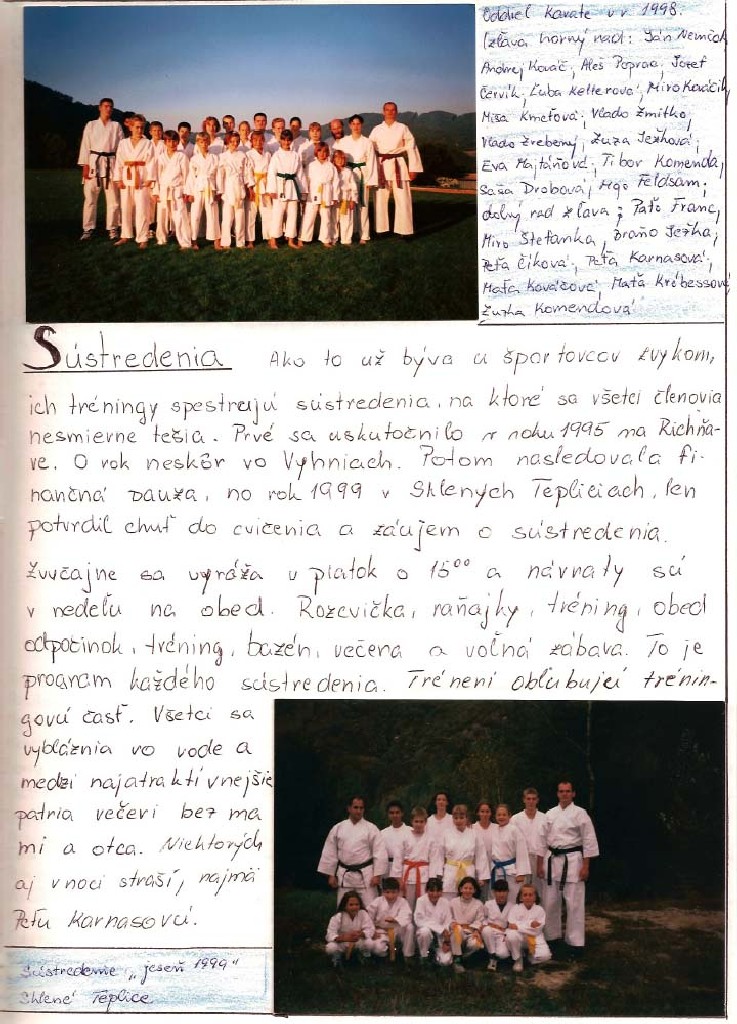 Oddiel Karate v r. 1998.
Izľava horný rad: Ján Nemčok
Andrej Kováč, Aleš Poprac, Jozef
Červík, Ľuba Kellerová, Miro Kováčik,
Miša Kmeťová, Vlado Žmitko,
Vlado Žrebený, Zuza Ježková,
Eva Majtánová, Tibor Komenda,
Saša Drobová, Feldsam;
dolný rad zľava: Paťo Franc,
Miro Štefanka, Braňo Ježka,
Peťa Číková, Peťa Karnasová,
Maťa Kováčová, Maťa Krébessová,
Zuzka Komendová
Sústredenia Ako to už býva u športovcov zvykom,
ich tréningy spestrujú sústredenia, na ktoré sa všetci členovia
nesmierne tešia. Prvé sa uskutočnilo v roku 1995 na Richňa-
ve. O rok neskôr vo Vyhniach. Potom nasledovala fi-
nančná pauza, no rok 1999 v Sklených Tepliciach, len
potvrdil chuť do cvičenia a záujem o sústredenia.
Zvyčajne sa vyráža v piatok o 15⁰⁰ a návraty sú
v nedeľu na obed. Rozcvička, raňajky, tréning, obed
odpočinok, tréning, bazén, večera a voľná zábava. To je
program každého sústredenia. Tréneri obľubujú trénin-
govú časť. Všetci sa
vybláznia vo vode a
medzi najatraktívnejšie
patria večery bez ma
mi a otca. Niektorých
aj v noci straší, najmä
Peťu Karnasovú.
Sústredenie „jeseň 1999"
Sklené Teplice